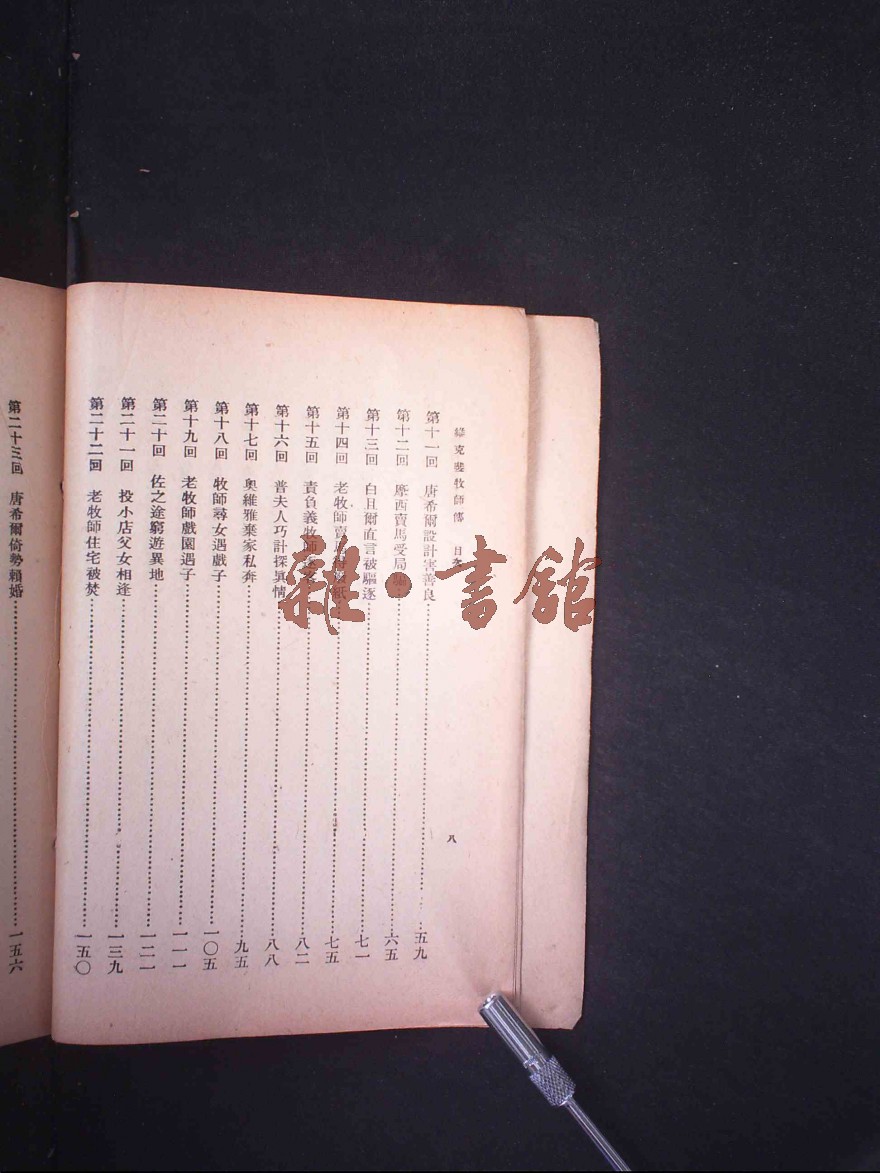 維克斐牧師傳 目 八
第十一回 唐希爾設計害善良 五九
第十二回 摩西賣馬受局騙 六五
第十三回 白且爾直言被驅逐 七一
第十四回 老牧師賣 七五
第十五回 責負義牧師 八二
第十六回 普夫人巧計探眞情 八八
第十七回 奧維雅棄家私奔 九五
第十八回 牧師尋女遇戲子 一〇五
第十九回 老牧師戲園遇子 一一一
第二十回 佐之途窮遊異地 一二一
第二十一回 投小店父女相逢 一三九
第二十二回 老牧師住宅被焚 一五〇
第二十三回 唐希爾倚勢賴婚 一五六
雜·書館